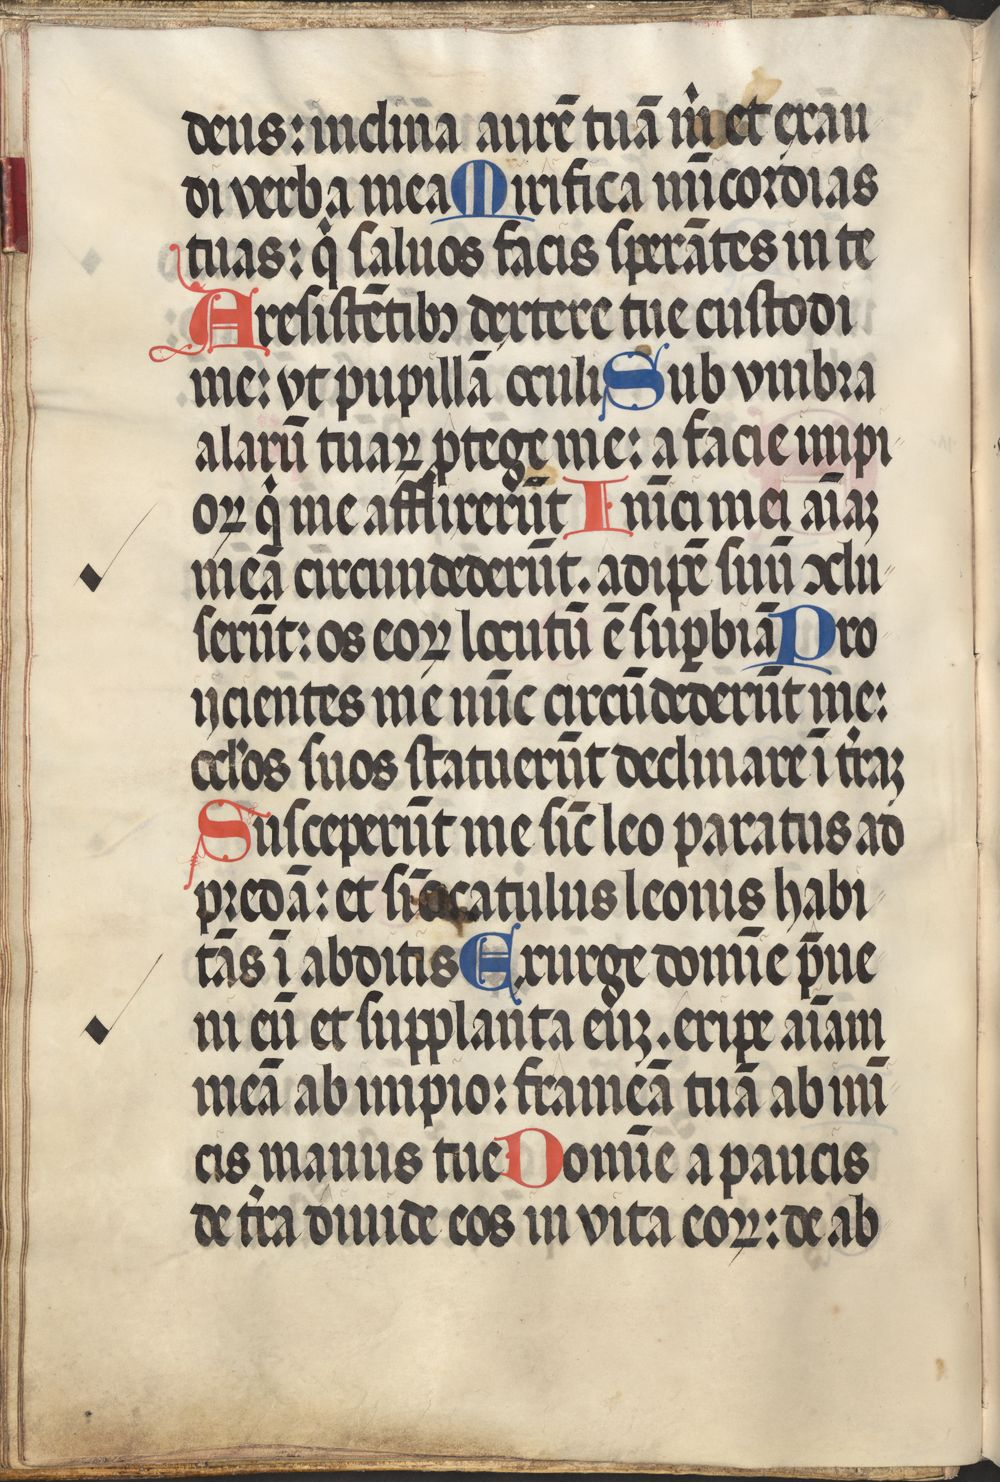 deus: inclina aurē tuā m̉ et exau
di verba mea Mirifica mīcordias
tuas: q̉ saluos facis sperātes in te
A resistētibꝫ dextere tue custodi
me: vt pupillā oculi Sub vmbra
alarū tuaꝝ ꝓtege me: a facie impi
oꝝ q̉ me afflixerūt Inīci mei aīaꝫ
meā circumdederūt. adipē suū ↄclu
serūt: os eoꝝ locutū ē suꝑbiā Pro
ijcientes me nūc circūdederūt me:
ocl'os suos statuerūt declinare ī t̉raꝫ
Susceperūt me sic̄ leo paratus ad
predā: et sic̄ catulus leonis habi
tās ī abditis Exurge domīe p̄ue
ni eū et supplanta eūꝫ. eripe aīam
meā ab impio: frameā tuā ab inī
cis manus tue Domīe a paucis
de t̉ra diuide eos in vita eoꝝ: de ab